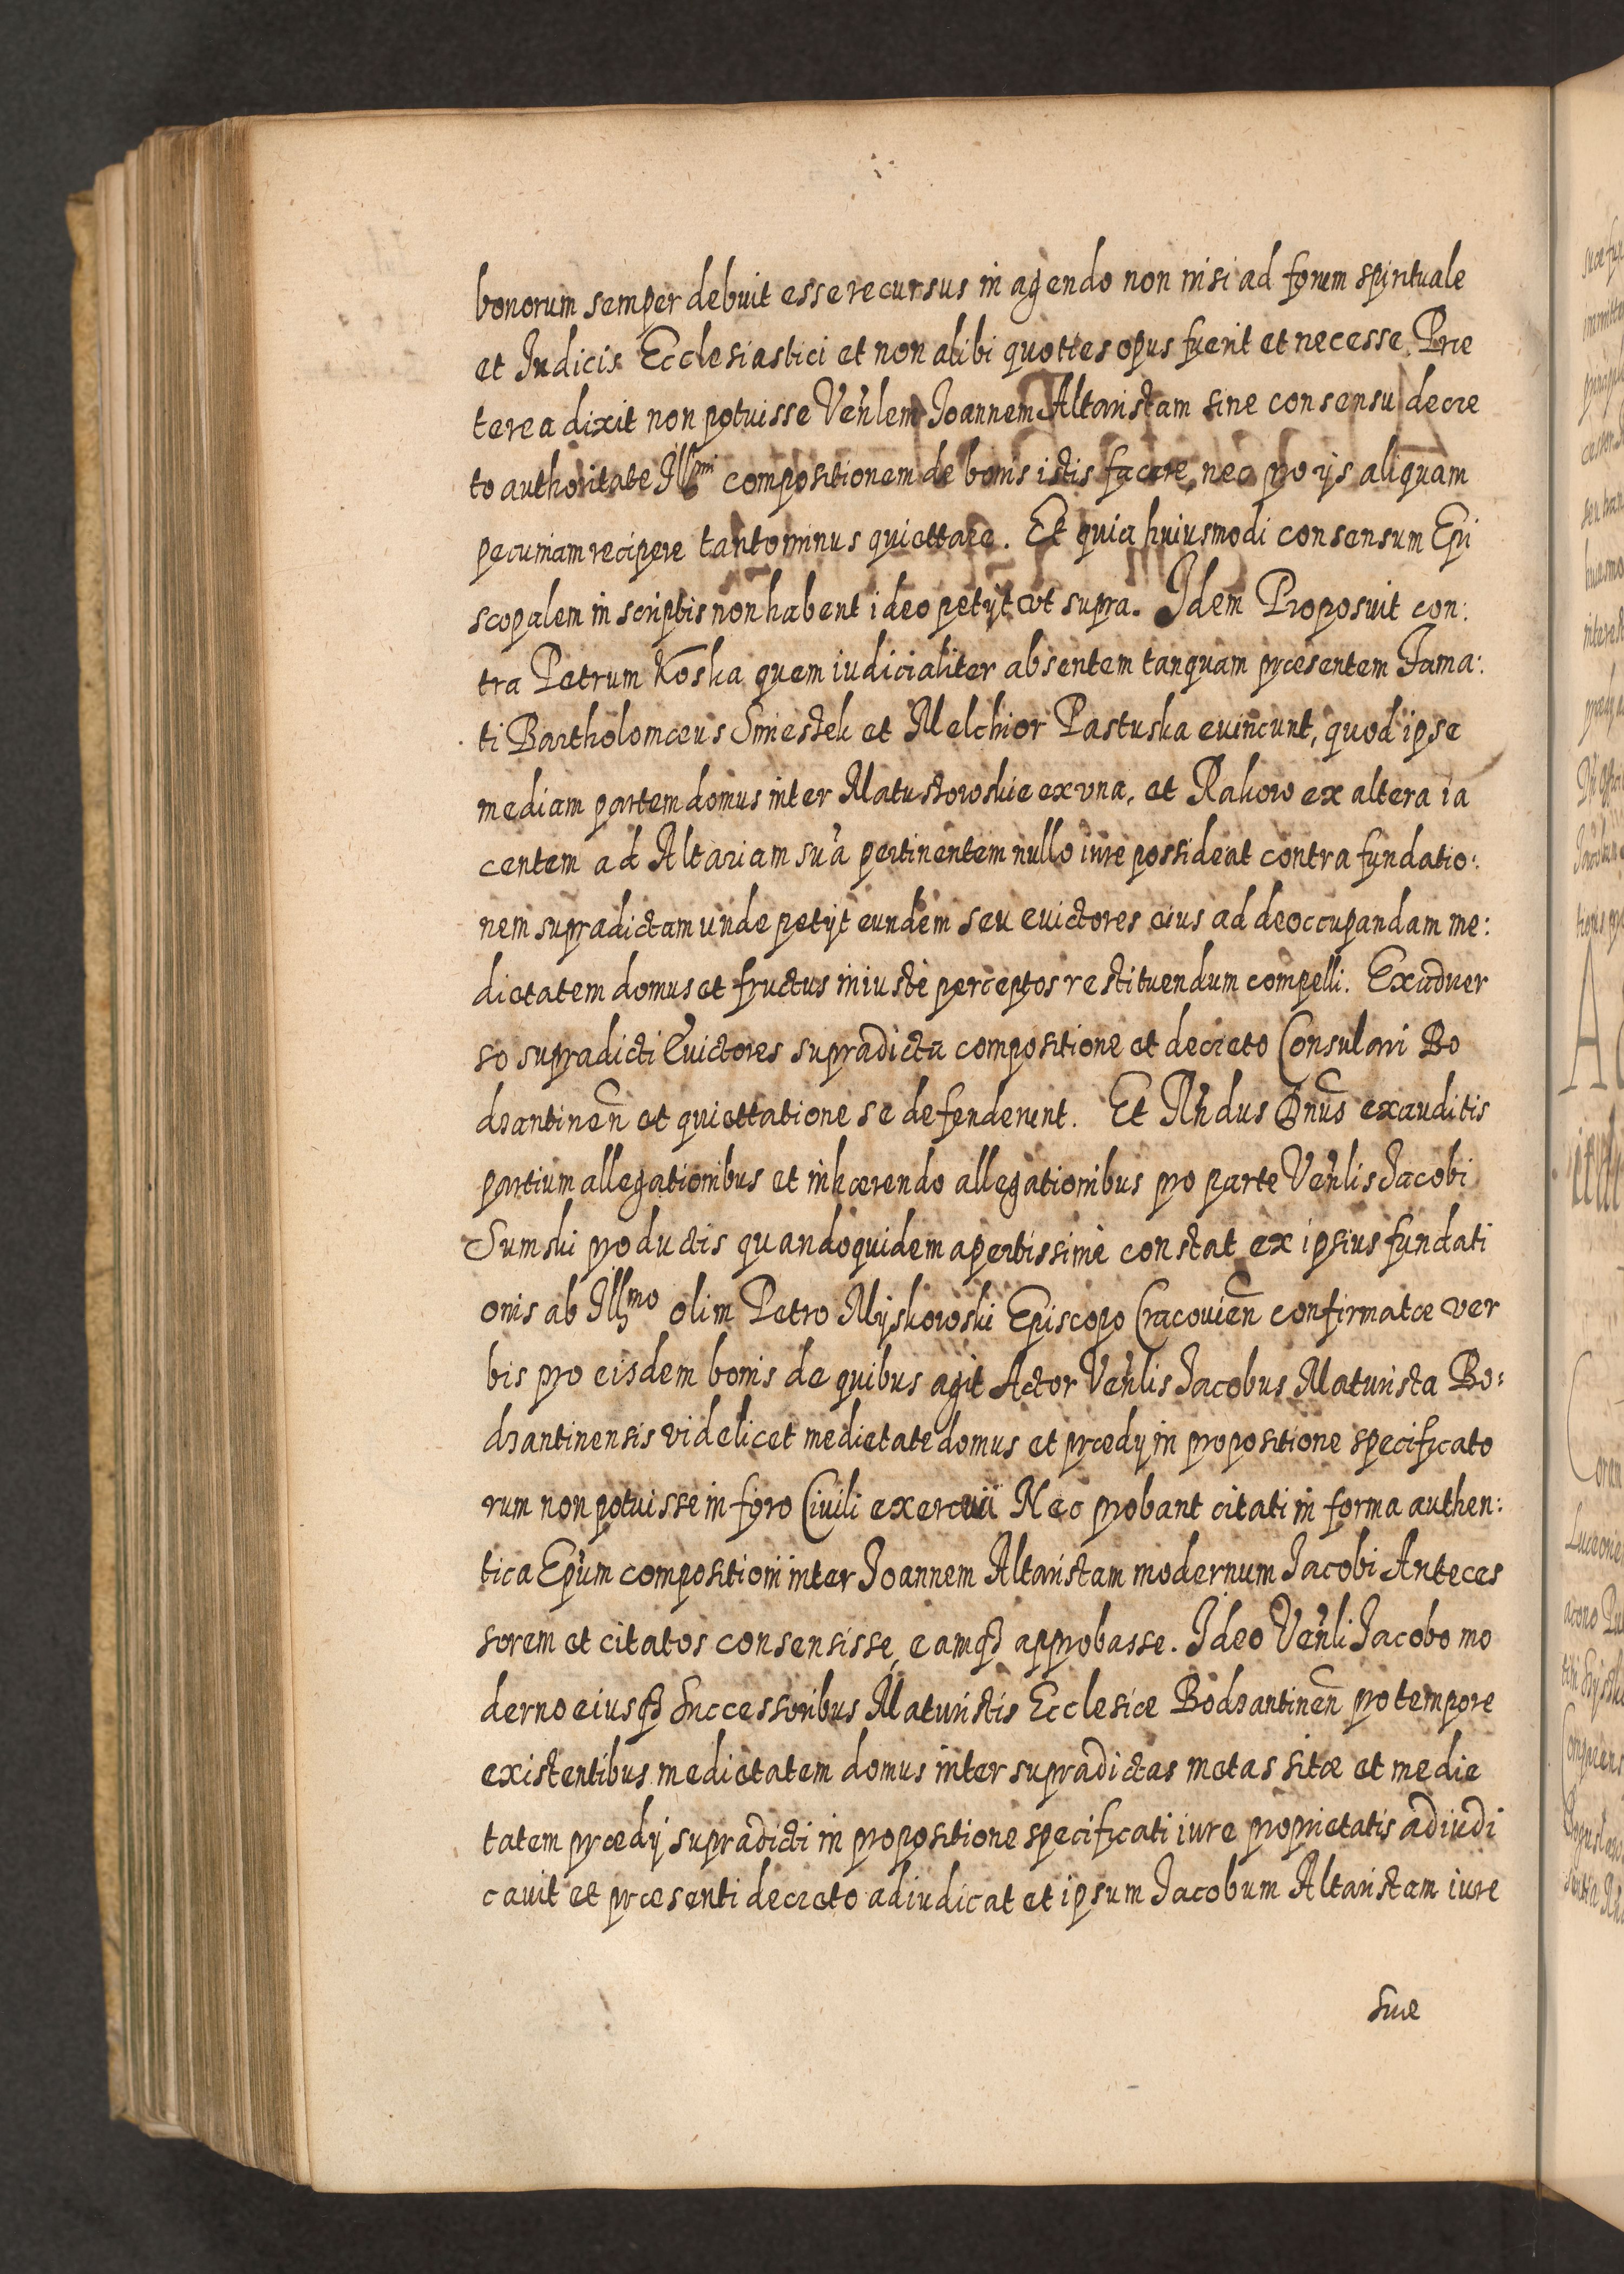 bonorum semper debuit esse recursus in agendo non nisi ad forum spirituale
et Iudicis Ecclesiastici et non alibi quoties opus fuerit et necesse. Præ
terea dixit non potuisse Veñlem Joannem Altaristam sine consensu decre
to authoritate Illmi compositionem de bonis istis facere, nec pro ijs aliquam
pecuniam recipere tanto minus quiettare. Et quia huiusmodi consensum Epi
scopalem in scriptis non habent ideo petijt vt supra. Idem Proposuit con:
tra Petrum Koska quem iudicialiter absentem tanquam præsentem Fama:
ti Bartholomæus Smestek et Melchior Pastuska euincunt, quod ipse
mediam partem domus inter Matustowskie ex vna, et Rakow ex altera ia
centem ad Altariam suã pertinentem nullo iure possideat contra fundatio:
nem supradictam unde petijt eundem seu euictores eius ad deoccupandam me:
dietatem domus et fructus iniuste perceptos restituendum compelli. Ex aduer
so supradicti Euictores supradicta compositione et decreto Consulari Bo
dzantineñ et quiettatione se defenderent. Et Rñdus Dnus exauditis
partium allegationibus et inhærendo allegationibus pro parte Veñlis Jacobi
Sumski productis quandoquidem apertissime constat ex ipsius fundati
onis ab Illmo olim Petro Myskowski Episcopo Cracouieñ confirmatæ ver
bis pro eisdem bonis de quibus agit Actor Veñlis Jacobus Maturista Bo:
dzantinensis videlicet medietate domus et prædij in propositione specificato
rum non potuisse in foro Ciuili exerceri Nec probant citati in forma authen:
tica Epũm compositioni inter Joannem Altaristam modernum Jacobi Anteces
sorem et citatos consensisse, eamqз approbasse. Ideo Veñli Jacobo mo
derno eiusqз Successoribus Maturistis Ecclesiæ Bodzantineñ pro tempore
existentibus medietatem domus inter supradictas metas sitæ et medie
tatem prædij supradicti in propositione specificati iure proprietatis adiudi
cauit et præsenti decreto adiudicat et ipsum Jacobum Altaristam iure
suæ